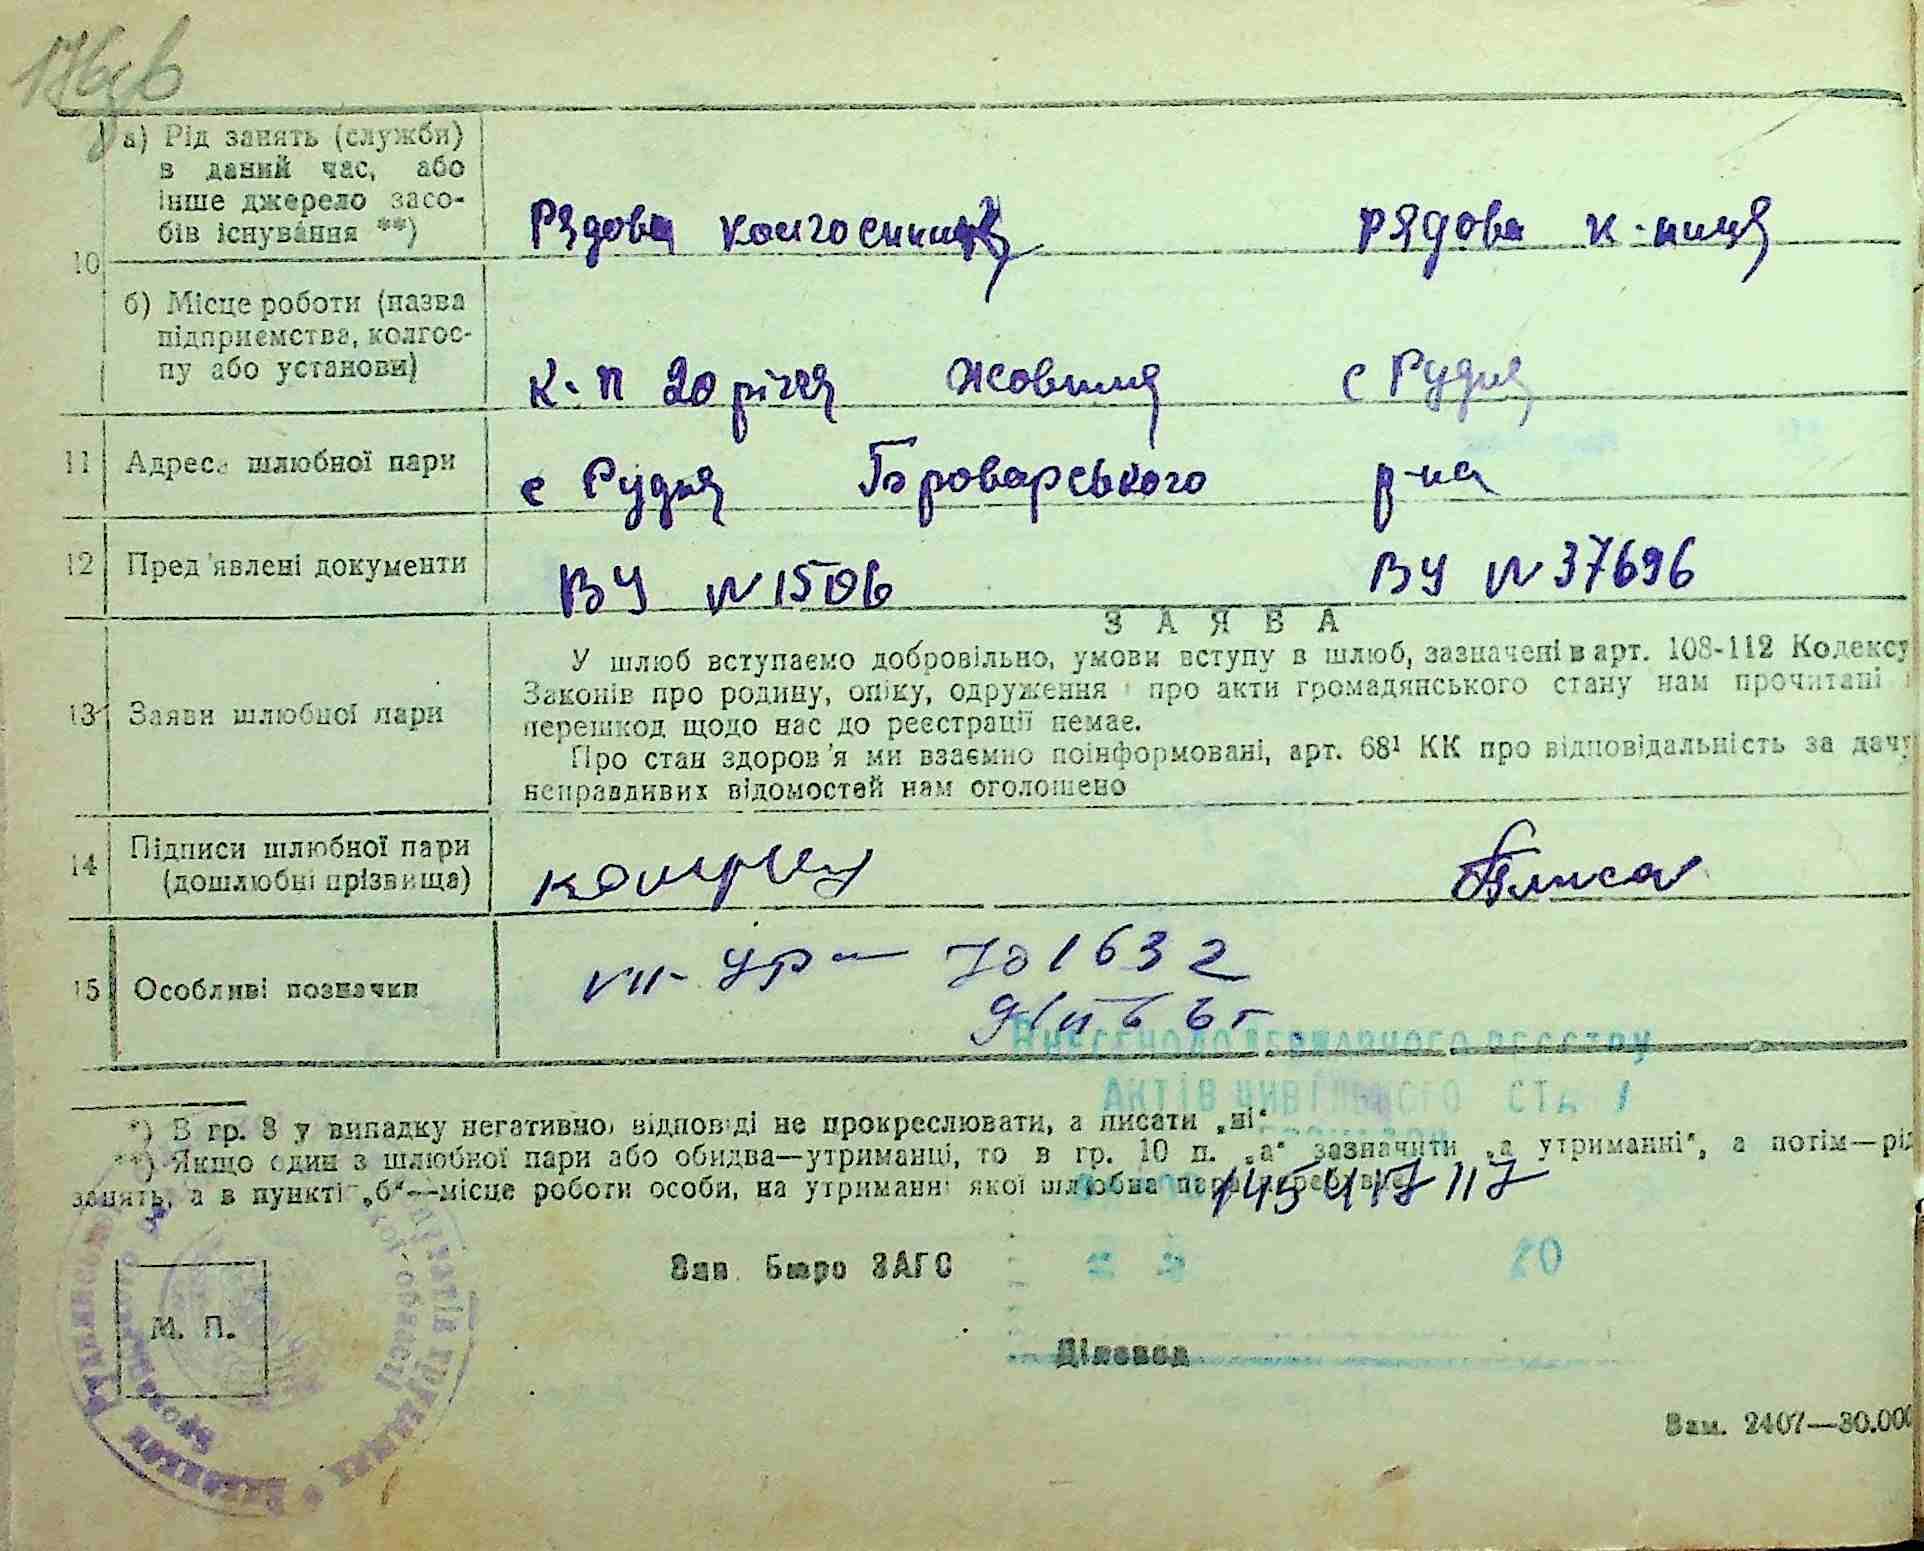 176 зв
10
а) Рід занять (служби) в даний час, або інше джерело засобів існування **)
Рядова колгоспниця рядова к-ниця
б) Місце роботи (назва підприємства, колгоспу або установи)
к-п 20 річчя Жовтня с Рудня
11 Адреса шлюбної пари
с Рудня Броварського р-на
12 Пред'явлені документи
ВУ № 1506 ВУ № 37696
ЗАЯВА
13 Заяви шлюбної пари
У шлюб вступаємо добровільно, умови вступу в шлюб, зазначені в арт. 108-112 Кодексу
Законів про родину, опіку, одруження і про акти громадянського стану нам прочитані і
перешкод щодо нас до реєстрації немає.
Про стан здоров'я ми взаємно поінформовані, арт. 68¹ КК про відповідальність за дачу
неправдивих відомостей нам оголошено
14 Підписи шлюбної пари
(дошлюбні прізвища)
15 Особливі позначки
VII-УР — 701632
9/II 66 г
Внесено до державного реєстру
актів цивільного
*) В гр. 8 у випадку негативної відповіді не прокреслювати, а писати „ні“
**) Якщо один з шлюбної пари або обидва—утриманці, то в гр. 10 п. „а“ зазначити „а утриманні“, а потім—рід
занять, а в пункті „б“—місце роботи особи, на утриманні якої шлюбна пара
145417117
Зав. Бюро ЗАГС
20
М. П.
Діловод
Зам. 2407—30.000